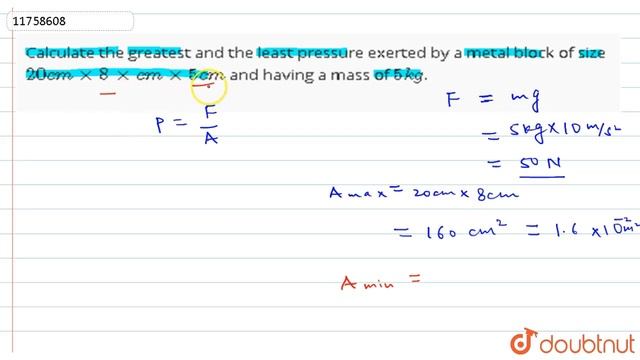 11758608
Calculate the greatest and the least pressure exerted by a metal block of size
20cm × 8 × cm × 5cm and having a mass of 5kg.
P = F/A
F = mg
= 5kg×10 m/s²
= 50 N
A max = 20cm × 8cm
= 160 cm² = 1.6 × 10⁻² m²
A min =
doubtnut